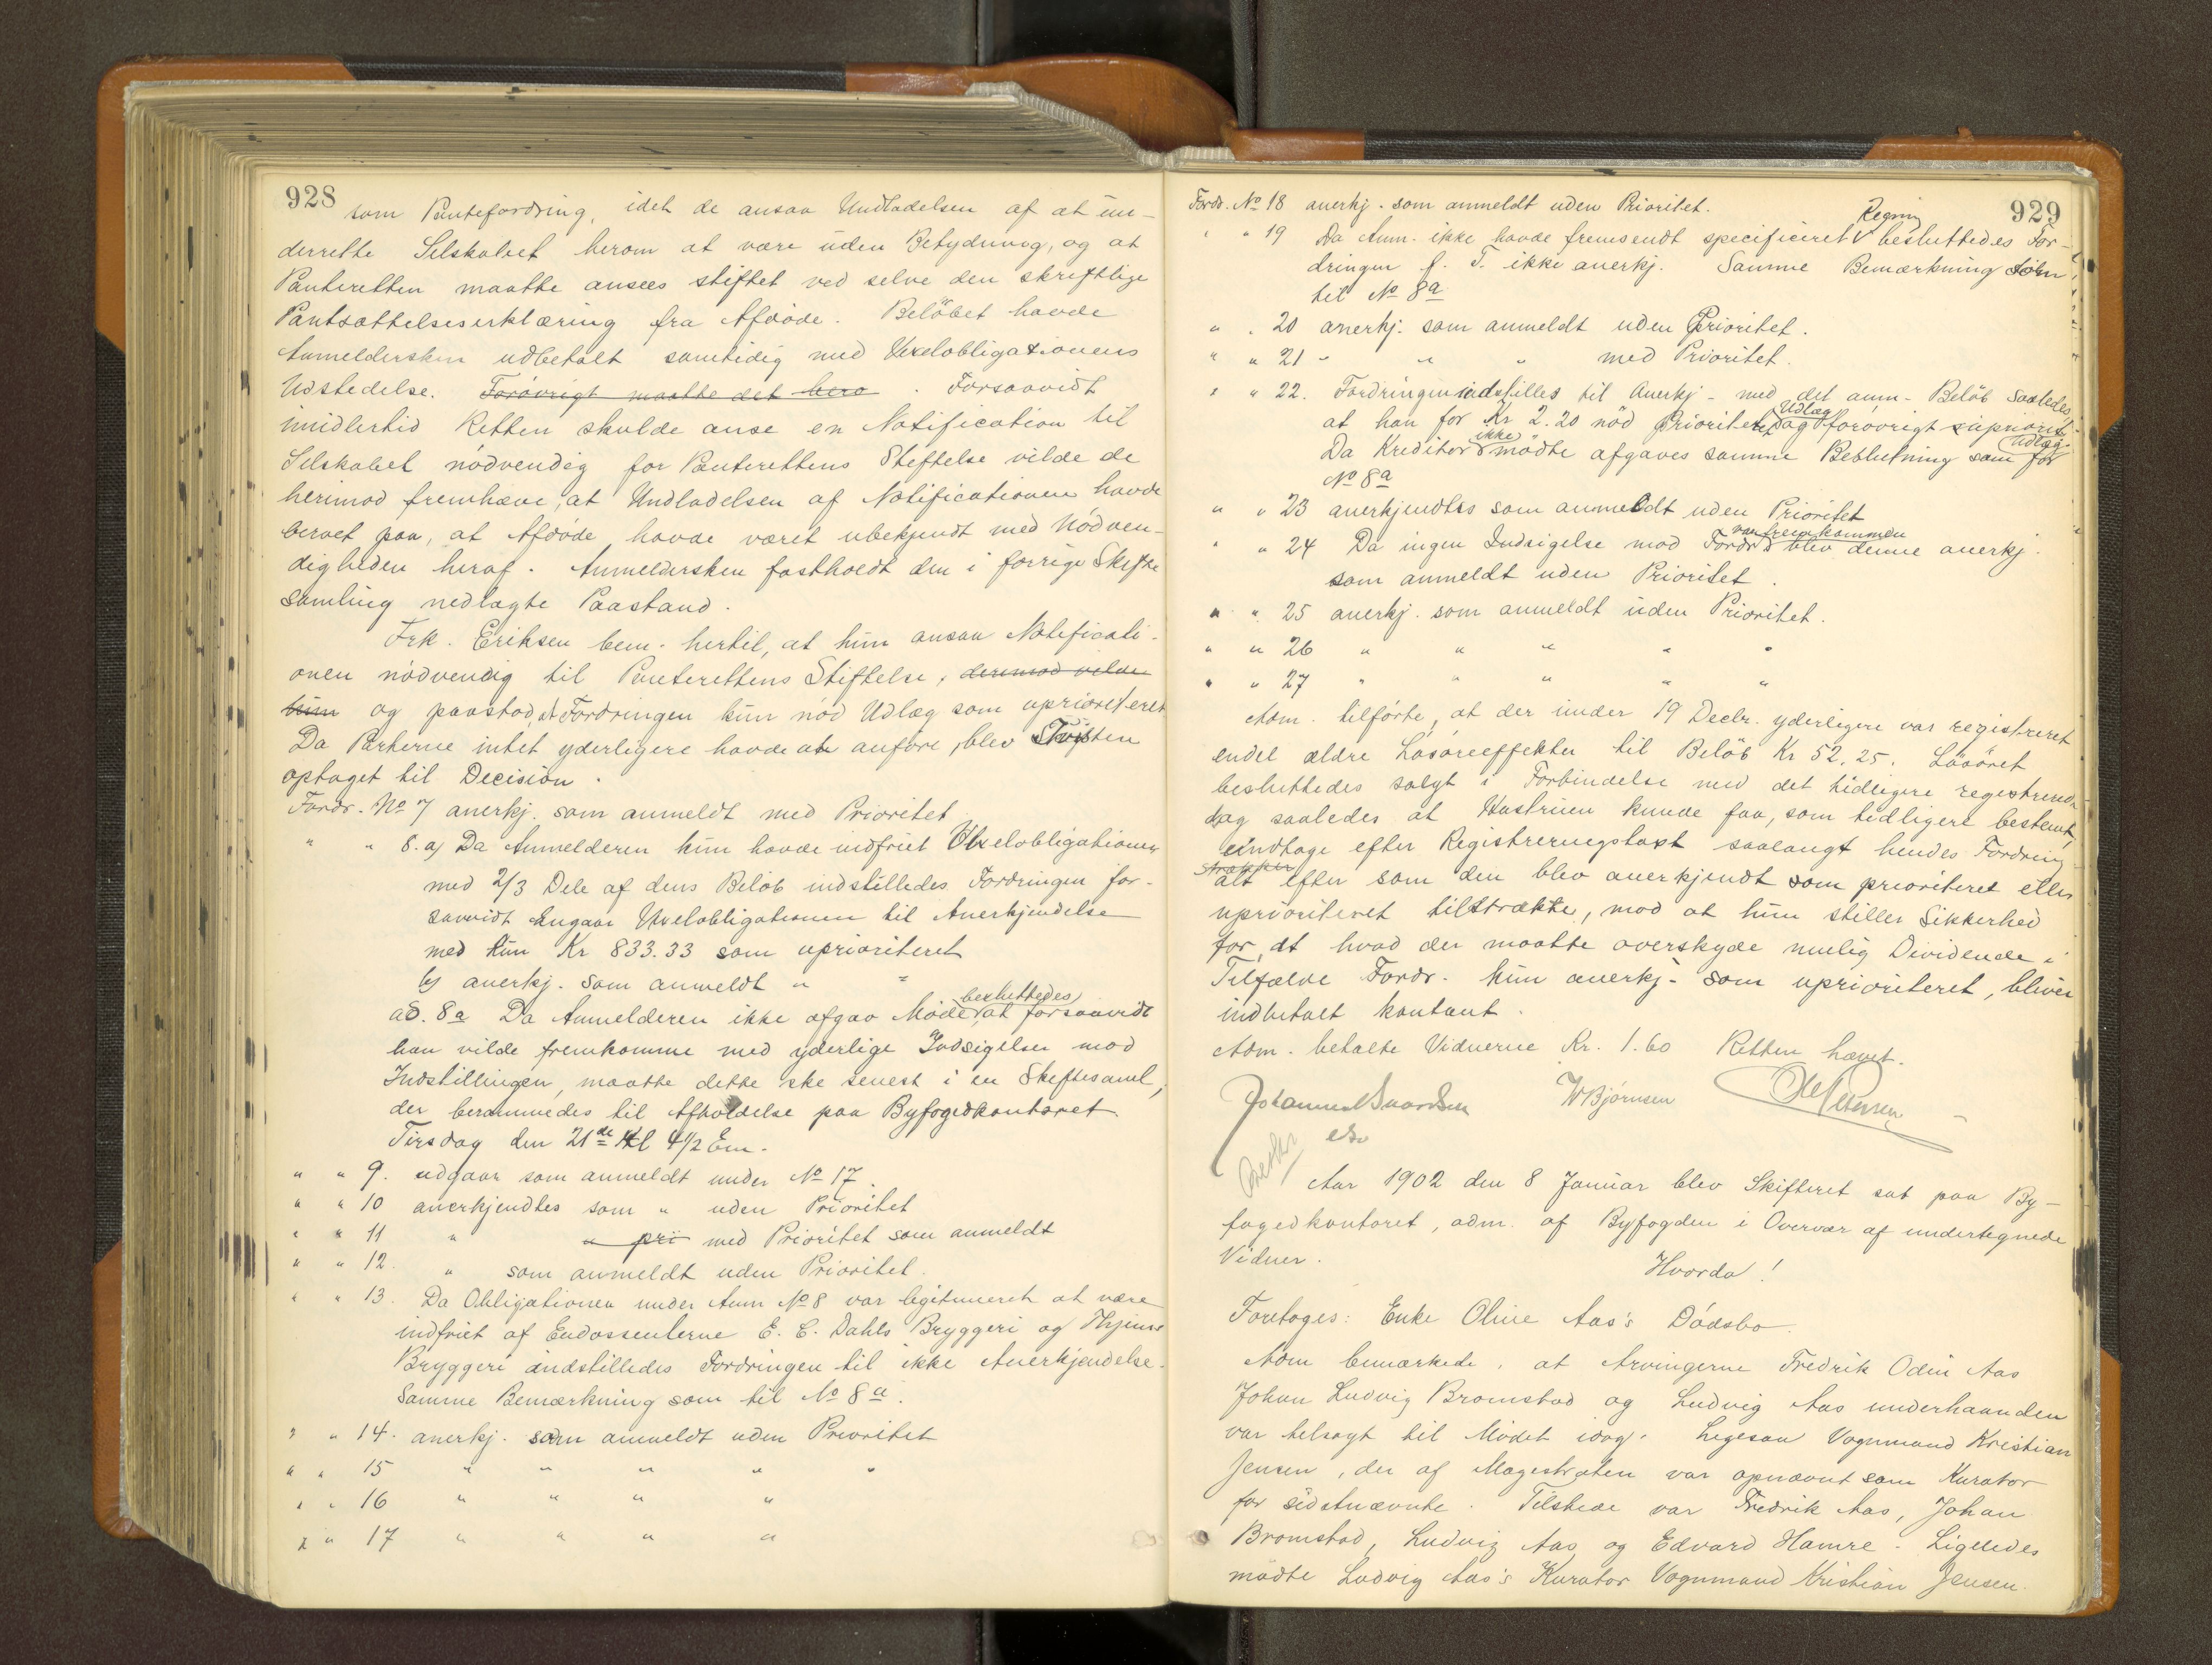 928
som Pantefordring, idet de ansaa Undladelsen af at un-
derrette Selskabet herom at være uden Betydning, og at
Panteretten maatte ansees stiftet ved selve den skriftlige
Pantsættelseserklæring fra Afdøde. Beløbet havde
Anmeldersken udbetalt samtidig med Vexelobligationens
Udstedelse. Forøvrigt maatte det bero. Forsaavidt
imidlertid Retten skulde anse en Notification til
Selskabet nødvendig for Panterettens Stiftelse vilde de
herimod fremhæve, at Undladelsen af Notificationen havde
beroet paa, at Afdøde havde været ubekjendt med Nødven-
digheden heraf. Anmeldersken fastholdt den i forrige Skifte
samling nedlagte Paastand.
Frk. Eriksen bem. hertil, at hun ansaa Notificati-
onen nødvendig til Panterettens Stiftelse, derimod vilde
hun og paastod, at Fordringen kun nød Udlæg som uprioriteret
Da Parterne intet yderligere havde at anføre, blev Tvisten
optaget til Decision.
Fordr. No 7 anerkj. som anmeldt med Prioritet
" " 8. a) Da Anmelderen kun havde indfriet Vexelobligationen
med 2/3 Dele af dens Beløb indstilledes Fordringen for-
saavidt angaar Vexelobligationen til Anerkjendelse
med kun Kr 833.33 som uprioriteret
b) anerkj. som anmeldt " "
ad. 8a Da Anmelderen ikke afgav Møde, besluttedes at forsaavidt
han vilde fremkomme med yderlige Indsigelser mod
Indstillingen, maatte dette ske senest i en Skiftesaml,
der berammedes til Afholdelse paa Byfogedkontoret
Tirsdag den 21de Kl 4 1/2 Em.
" " 9. udgaar som anmeldt under No 17.
" " 10 anerkjendtes som " uden Prioritet
" " 11 " " pri med Prioritet som anmeldt
" " 12. " som anmeldt uden Prioritet.
" " 13. Da Obligationen under Anm No 8 var legitimeret at være
indfriet af Endossenterne E. C. Dahls Bryggeri og Thjems
Bryggeri indstilledes Fordringen til ikke Anerkjendelse.
Samme Bemærkning som til No 8a.
" " 14. anerkj. som anmeldt uden Prioritet
" " 15 " " " " "
" " 16 " " " "
" " 17 " " " "
929
Fordr. No 18 anerkj. som anmeldt uden Prioritet.
" " 19 Da Anm. ikke havde fremsendt specificeret Regning besluttedes For-
dringen f. T. ikke anerkj. Samme Bemærkning som
til No 8a
" " 20 anerkj. som anmeldt uden Prioritet.
" " 21 " " " med Prioritet.
" " 22. Fordringen indstilles til Anerkj. med det anm. Beløb saaledes,
at han for Kr 2.20 nød Prioritet Udlæg og forøvrigt upriorit.
Udlæg.
Da Kreditor ikke mødte afgaves samme Beslutning som for
No 8a
" " 23 anerkjendtes som anmeldt uden Prioritet
" " 24 Da ingen Indsigelse mod Fordr. var fremkommen blev denne anerkj.
som anmeldt uden Prioritet.
" " 25 anerkj. som anmeldt uden Prioritet.
" " 26 " " " " "
" " 27 " " " " "
Adm. tilførte, at der under 19 Decbr. yderligere var registreret
endel ældre Løsøreeffekter til Beløb Kr 52.25. Løsøret
besluttedes solgt i Forbindelse med det tidligere registrerede
dog saaledes at Hustruen kunde faa, som tidligere bestemt,
indtage efter Registreringstaxt saalangt hendes Fordring
strækker
alt efter som den blev anerkjendt som prioriteret eller
uprioriteret tilstrækte, mod at hun stiller Sikkerhed
for, at hvad der maatte overskyde mulig Dividende i
Tilfælde Fordr. kun anerkj. som uprioriteret, bliver
indbetalt kontant.
Adm. betalte Vidnerne Kr. 1.60 Retten hævet.
W Bjørnsen Ole Petersen
Aar 1902 den 8 Januar blev Skifteret sat paa By-
fogedkontoret, adm. af Byfogden i Overvær af undertegnede
Vidner.
Hvorda!
Foretoges: Enke Oline Aas's Dødsbo.
Adm bemærkede, at Arvingerne Fredrik Odin Aas
Johan Ludvig Bromstad og Ludvig Aas underhaanden
var tilsagt til Mødet idag. Ligesaa Vognmand Kristian
Jensen, der af Magistraten var opnævnt som Kurator
for sidstnævnte. Tilstede var Fredrik Aas, Johan
Bromstad, Ludvig Aas og Edvard Hamre. Ligeledes
mødte Ludvig Aas's Kurator Vognmand Kristian Jensen.